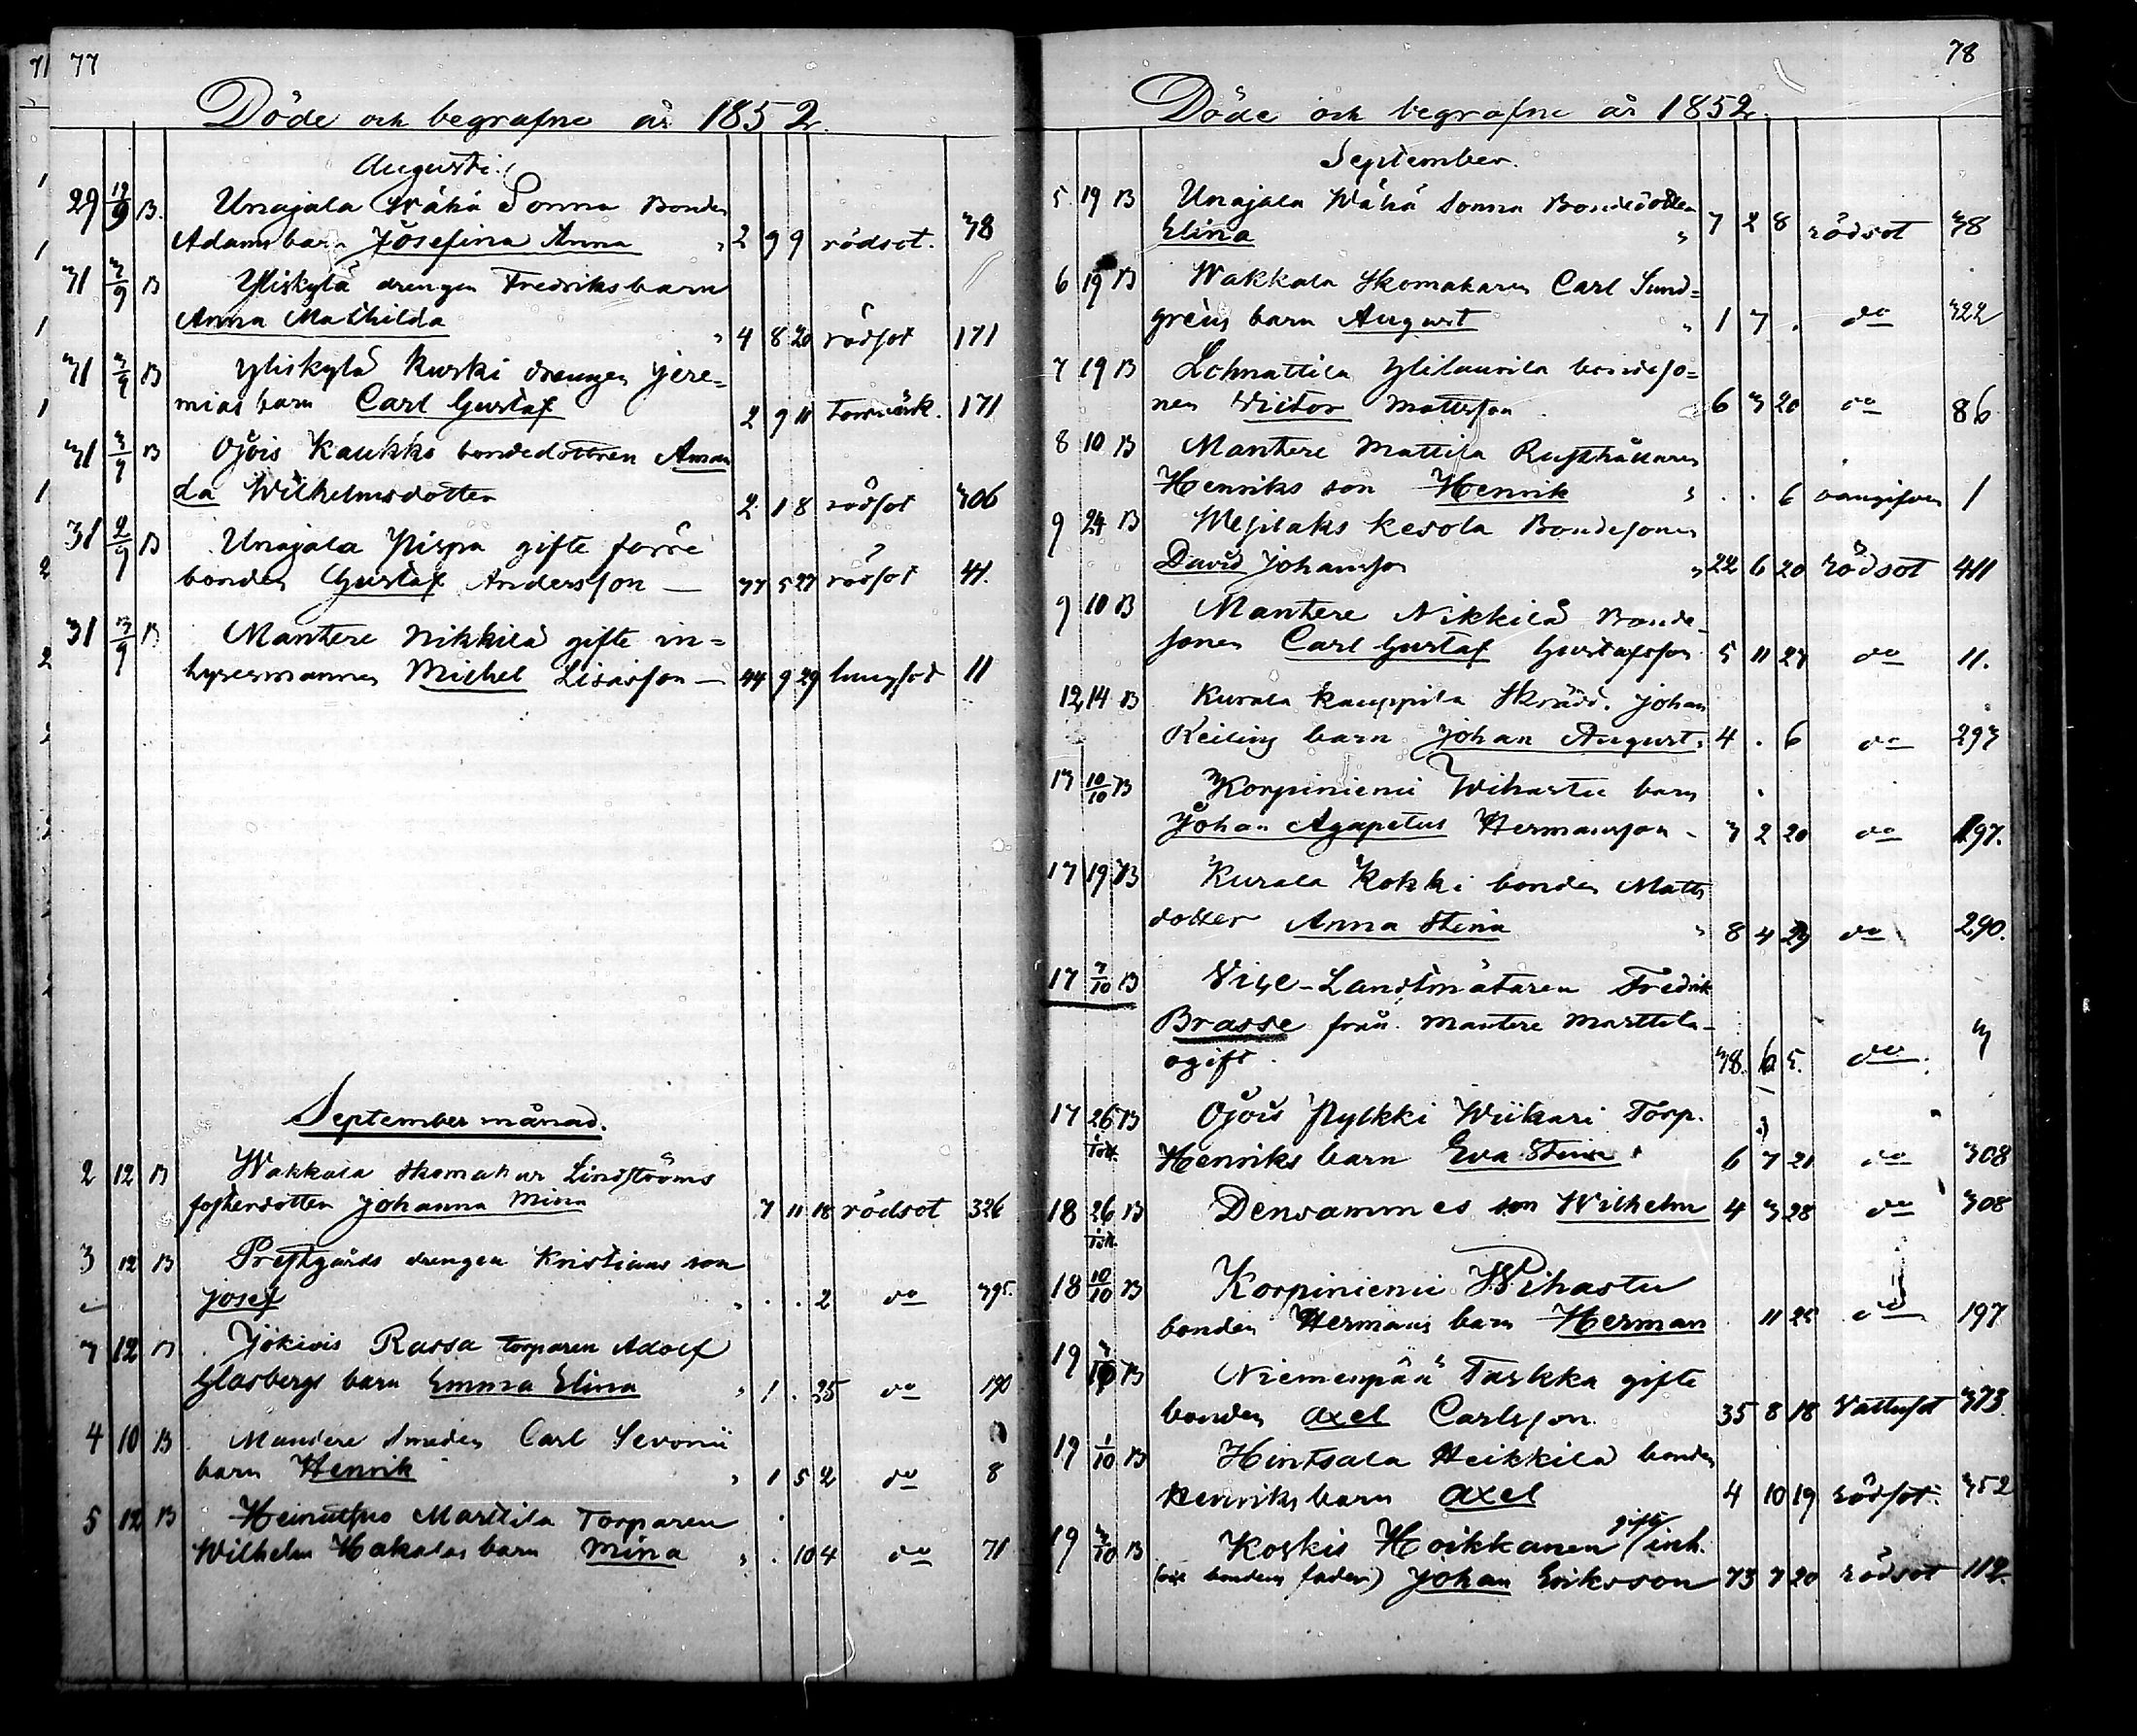 77
Döde och begrafne år 1852.
Augusti.
29 12/9 B. Unajala Wähä Sonna Bonden
Adams barn Josefina Anna " 2 9 9 rödsot. 38
31 3/9 B Yliskylä drengen Fredriks barn
Anna Mathilda " 4 8 20 rödsot 171
31 3/9 B Yliskylä Kurski drengen Jere=
mias barn Carl Gustaf 2 9 11 171
31 3/9 B Ojois Kaukko bondedottren Aman
da Wilhelmsdotter 2 1 8 rödsot 306
31 2/9 B Unajala Pispa gifte förre
bonden Gustaf Andersson — 77 5 27 rödsot 41.
31 3/9 B Mantere Nikkilä gifte in=
hyresmannen Michel Lisasson — 44 9 29 lungsot 11
September månad.
2 12 B Wakkala Skomakar Lindströms
fosterdotter Johanna Mina 7 11 18 rödsot 326
3 12 B Prestgårds drengen Kristians son
Josef " . . 2 do 395.
3 12 B Jokiois Rassa torparen Adolf
Glasbergs barn Emma Elina " 1 . 25 do 190
4 10 B Mandere Smeden Carl Sevonii
barn Henrik " 1 5 2 do 8
5 12 B Heinuthus Marttila Torparen
Wilhelm Hakalas barn Mina " . 10 4 do 71
78
Döde och begrafne år 1852.
September.
5 19 B Unajala Wähä Sonna Bondedottern
Elina " 7 2 8 rödsot 38
6 19 B Wakkala Skomakaren Carl Sund=
gréns barn August " 1 7 . do 322
7 19 B Lehnattila Ylitaurila bondeso=
nen Victor Mattsson 6 3 20 do 86
8 10 B Mantere Mattila Rusthållaren
Henriks son Henrik " . . 6 oangifven 1
9 24 B Mesilaks Kesola Bondesonen
David Johansson " 22 6 20 rödsot 411
9 10 B Mantere Nikkilä Bonde-
sonen Carl Gustaf Gustafsson 5 11 27 do 11.
12 14 B Kurala Kauppila Skrädd. Johan
Keiling barn Johan August " 4 . 6 do 293
13 10/10 B Korpiniemi Wihastu barn
Johan Agapetus Hermansson - 3 2 20 do 197.
17 19 B Kurala Kokki bonden Matts
dotter Anna Stina " 8 4 29 do 290.
17 7/10 B Vice-Landtmätaren Fredrik
Brasse från Mantere Marttila-
ogift. 38. 6 5. do 3
17 26 B Ojois Pylkki Wiikari Torp.
Henriks barn Eva Stina 6 7 21 do 308
18 26 B Densammes son Wilhelm 4 3 28 do 308
18 10/10 B Korpiniemi Wihastu
bonden Hermans barn Herman . 11 25 do 197
19 3/10 B Niemenpää Taskka gifte
bonden Axel Carlsson 35 8 18 Vattusot 373.
19 1/10 B Hintsala Heikkilä bonden
Henriks barn Axel 4 10 19 rödsot. 352
19 3/10 B Koskis Hoikkanen gifte inh.
bondens fader) Johan Eriksson 73 7 20 rödsot 112.